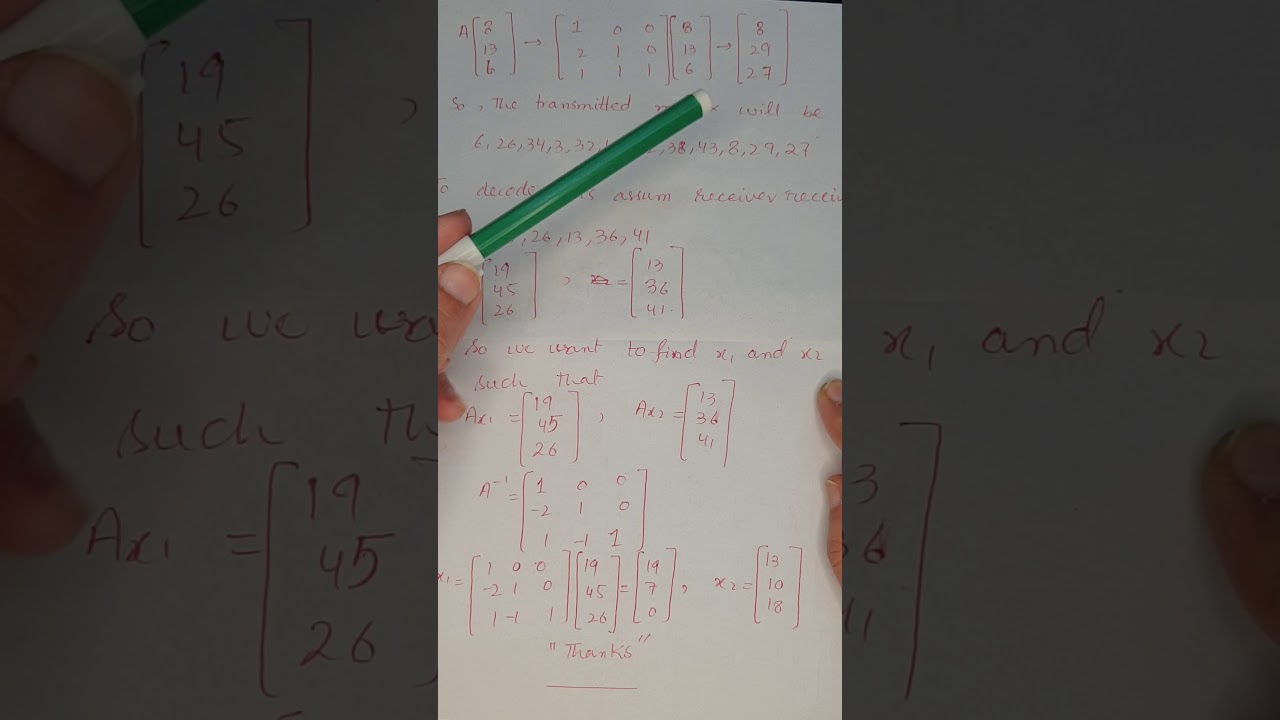 A [8 13 6] → [1 0 0 2 1 0 1 1 1] [8 13 6] → [8 29 27]
So, The transmitted will be
6, 26, 34, 3, 32, 38, 43, 8, 29, 27
decode assum receiver
, 26, 13, 36, 41
[19 45 26] , = [13 36 41]
So we want to find x1 and x2
such that
Ax1 = [19 45 26] , Ax2 = [13 36 41]
A⁻¹ = [1 0 0 -2 1 0 1 -1 1]
x1 = [1 0 0 -2 1 0 1 -1 1] [19 45 26] = [19 7 0] , x2 = [13 10 18]
"Thanks"